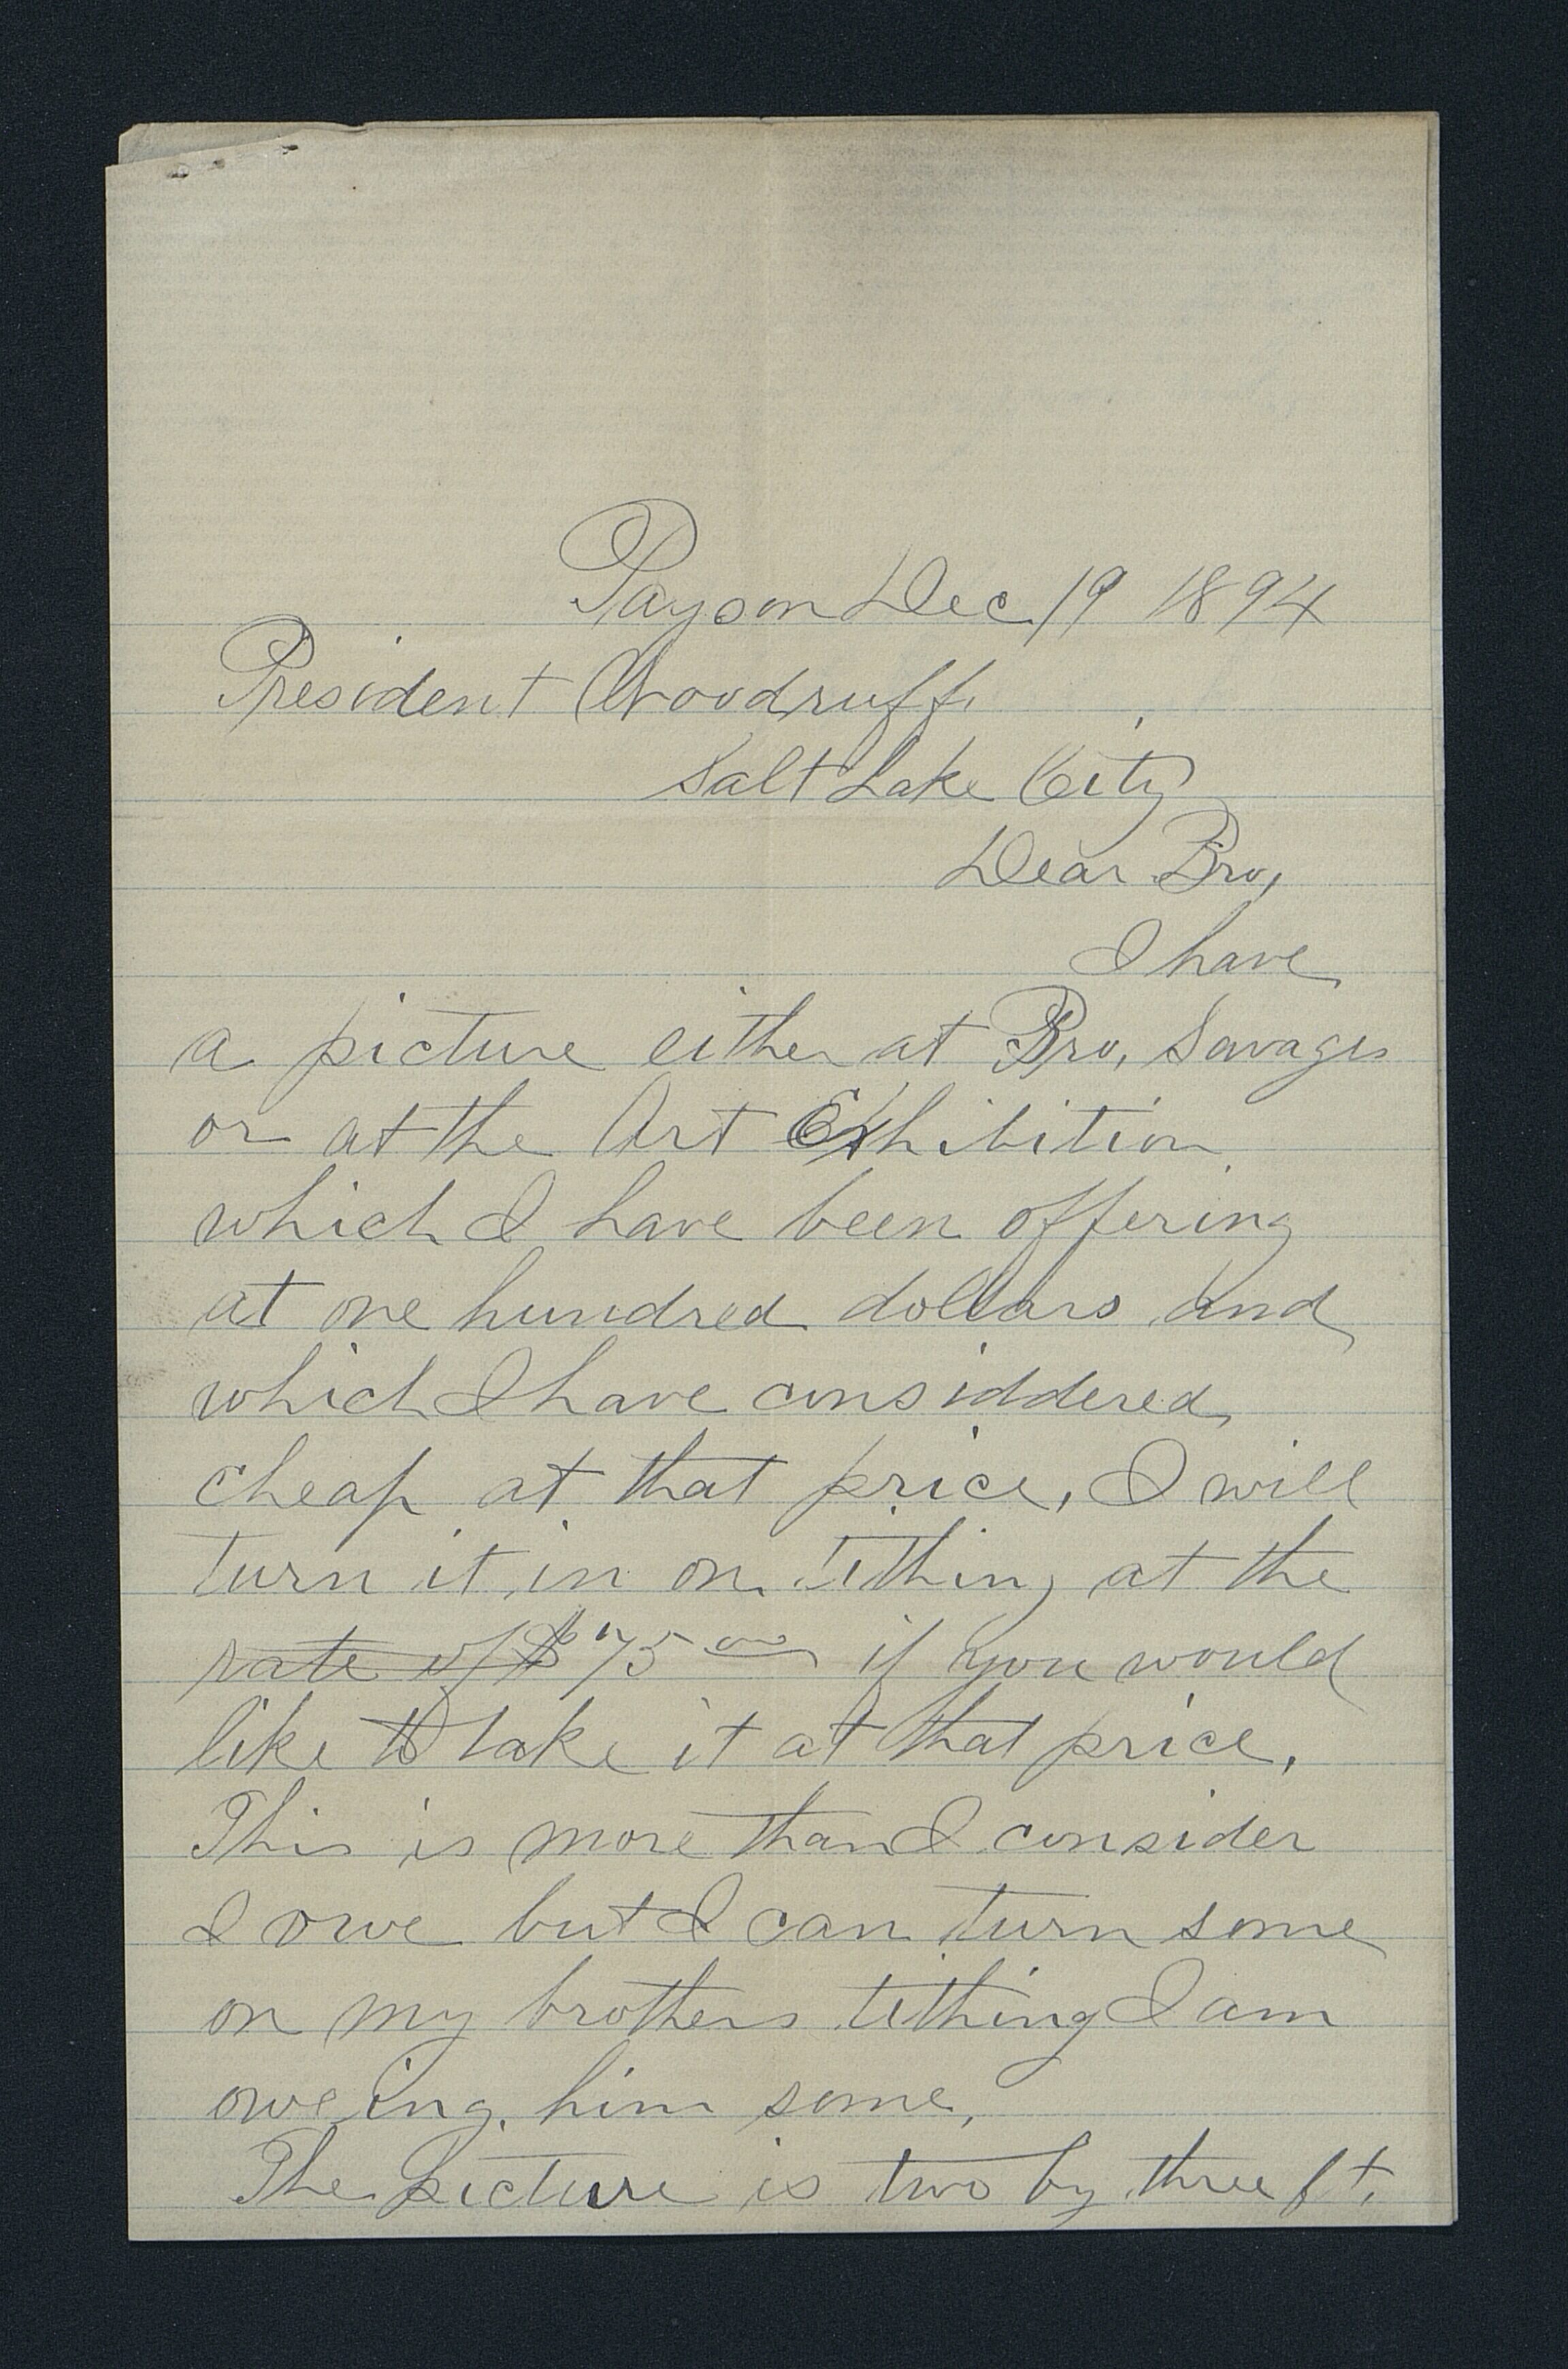 Payson Dec. 19 1894
President Woodruff.
Salt Lake City
Dear Bro,
I have
a picture either at Bro, Savages
or at the Art Exhibition
which I have been offering
at one hundred dollars and
which I have considdered
cheap at that price, I will
turn it in on tithing at the
rate of $75 00 if you would
like to take it at that price,
This is more than I consider
I owe but I can turn some
on my brothers tithing I am
oweing him some,
The picture is two by three ft.